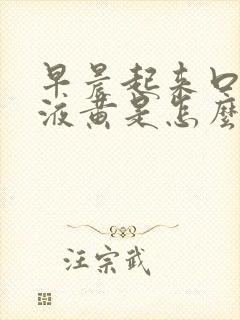 早晨起来口
液黄是怎麽
汪宗武